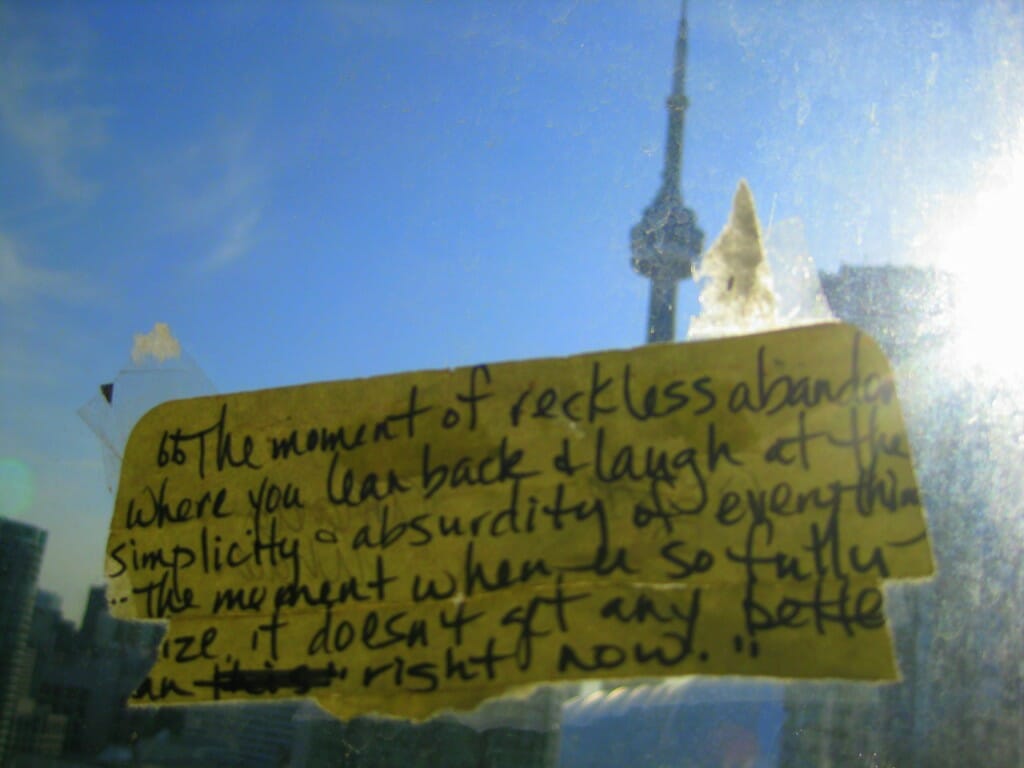 “The moment of reckless abandon
where you lean back & laugh at the
simplicity & absurdity of everythin
...The moment when u so fully
ize it doesn't get any bette
an this right now."